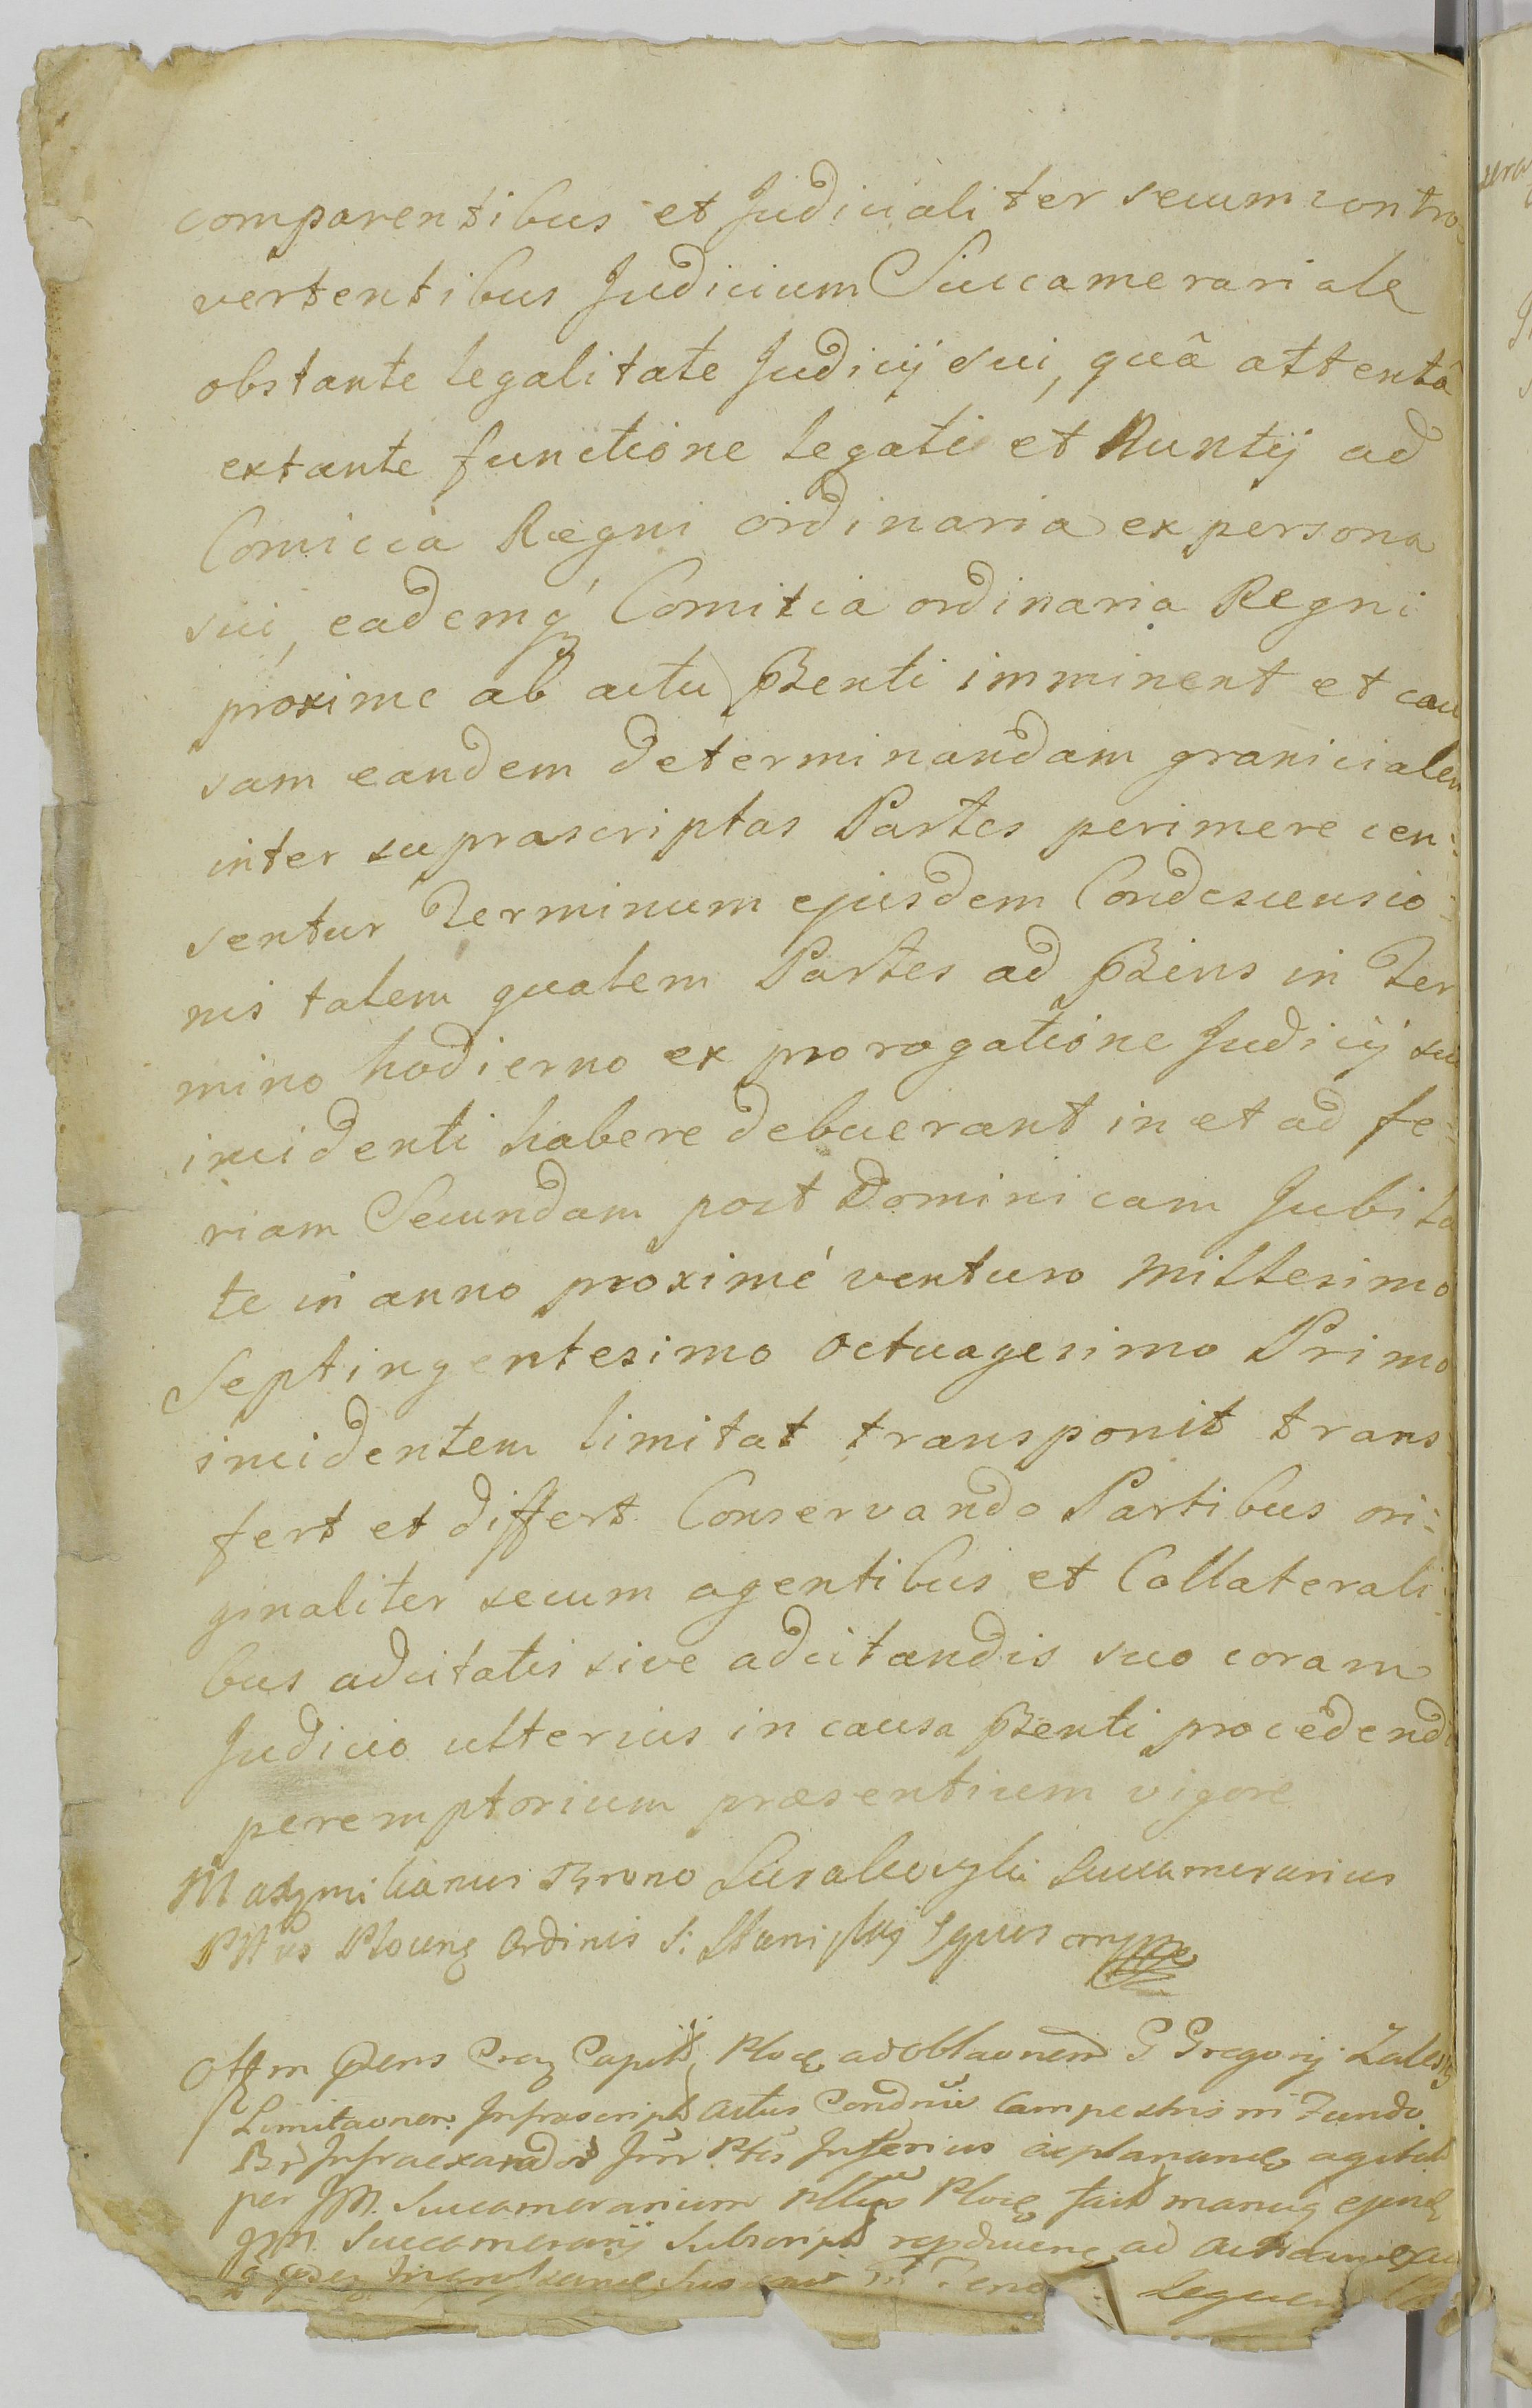 comparentibus et Judicialiter secum contro-
vertentibus Judicium Succamerariale
obstante legalitate Judicij sui, quâ attentâ
extante functione legati et Nuntij ad
Comicia Regni ordinaria ex persona
sui, eademq́ Comitia ordinaria Regni
proxime ab actu Pzenti imminent et cau
sam eandem determinandam granicialem
inter suprascriptas Partes perimere cen:
sentur Terminum ejusdem Condescensio:
nis talem qualem Partes ad Pzens in Ter
mino hodierno ex prorogatione Judicij sui
incidenti habere debuerant in et ad fe:
riam Secundam post Dominicam Jubila
te in anno proximé venturo Millesimo
Septingentesimo Octuagesimo Primo
incidentem limitat transponit trans
fert et differt Conservando Partibus ori:
ginaliter secum agentibus et Collaterali:
bus adcitatis sive adcitandis suo coram
Judicio ulterius in causa Pzenti procedendi
peremptorium præsentium vigore
Maxymilianus Bruno Succamerarius
Ordinis S: mppa
Off m Pzens Capit ad G Gregorij
Limitaonem Infrascript Actus Campestris in Fundo
Inferius
per JM. Succamerarium
Succamerarij Subscript ad